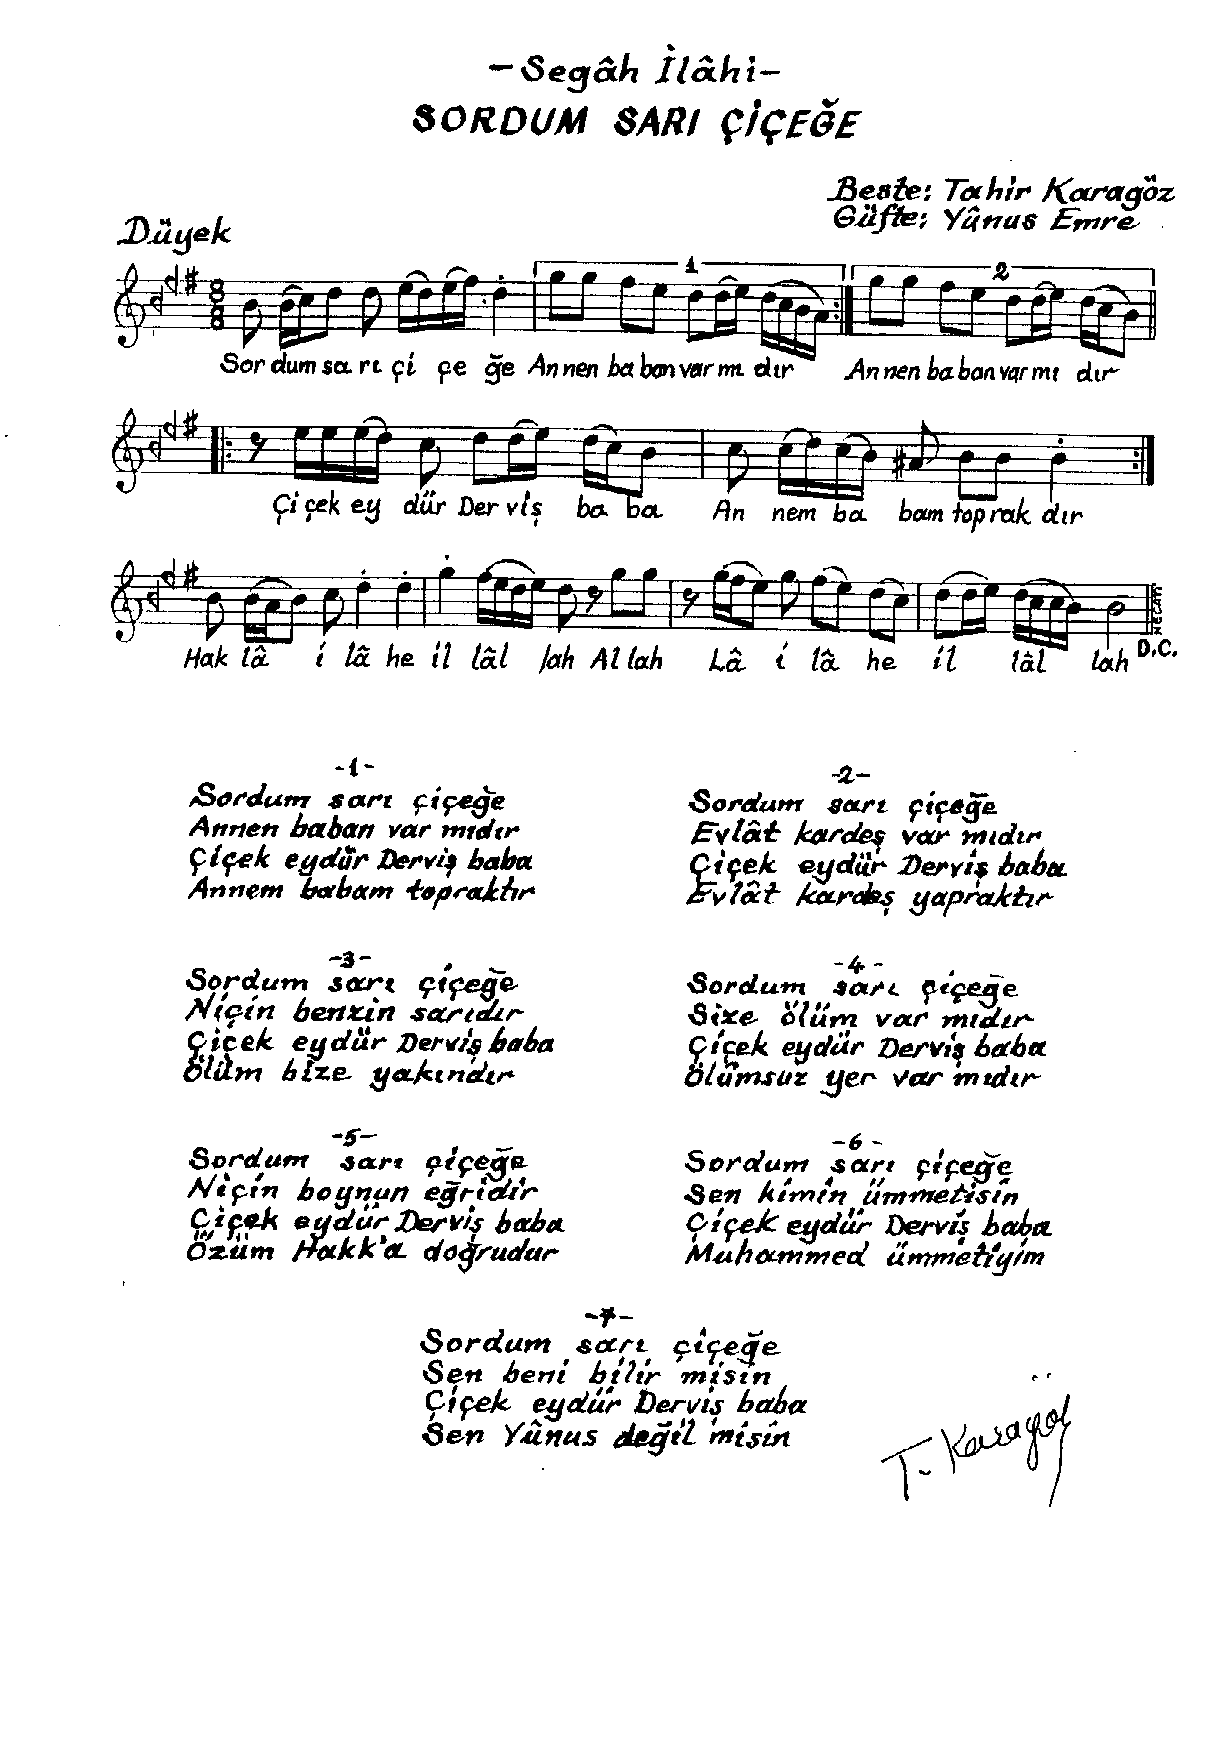 -Segâh İlâhi-
SORDUM SARI ÇİÇEĞE
Beste: Tahir Karagöz
Güfte: Yûnus Emre
Düyek
1 2
8 8
Sor dum sa rı çi çe ğe An nen ba ban var mı dır An nen ba ban var mı dır
Çi çek ey dür Der viş ba ba An nem ba bam top rak dır
Hak lâ i lâ he il lâl lah Al lah Lâ i lâ he il lâl lah D.C.
-1-
Sordum sarı çiçeğe
Annen baban var mıdır
Çiçek eydür Derviş baba
Annem babam topraktır
-2-
Sordum sarı çiçeğe
Evlât kardeş var mıdır
Çiçek eydür Derviş baba
Evlât kardeş yapraktır
-3-
Sordum sarı çiçeğe
Niçin benzin sarıdır
Çiçek eydür Derviş baba
Ölüm bize yakındır
-4-
Sordum sarı çiçeğe
Size ölüm var mıdır
Çiçek eydür Derviş baba
Ölümsuz yer var mıdır
-5-
Sordum sarı çiçeğe
Niçin boynun eğridir
Çiçek eydür Derviş baba
Özüm Hakk'a doğrudur
-6-
Sordum sarı çiçeğe
Sen kimin ümmetisin
Çiçek eydür Derviş baba
Muhammed ümmetiyim
-7-
Sordum sarı çiçeğe
Sen beni bilir misin
Çiçek eydür Derviş baba
Sen Yûnus değil misin
T. Karagöz